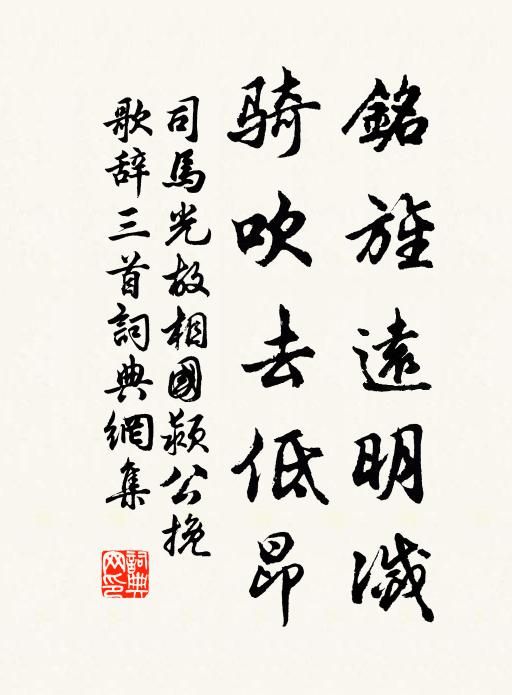 銘旌遠明滅
騎吹去低昂
司馬光故相國潁公挽
歌辞三首詞典網集
詞典
网印